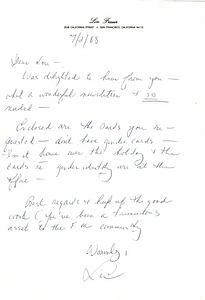 Lin Fraser
2538 CALIFORNIA STREET • SAN FRANCISCO, CALIFORNIA 94115
7/3/88
Dear Lou —
Was delighted to hear from you —
what a wonderful newsletter & so
needed —
Enclosed are the cards you re-
quested — don't have gender cards —
I'm at home over the holiday & the
cards re gender identity are at the
office —
Best regards & keep up the good
work (you've been a tremendous
asset to the community
Warmly,
Lin